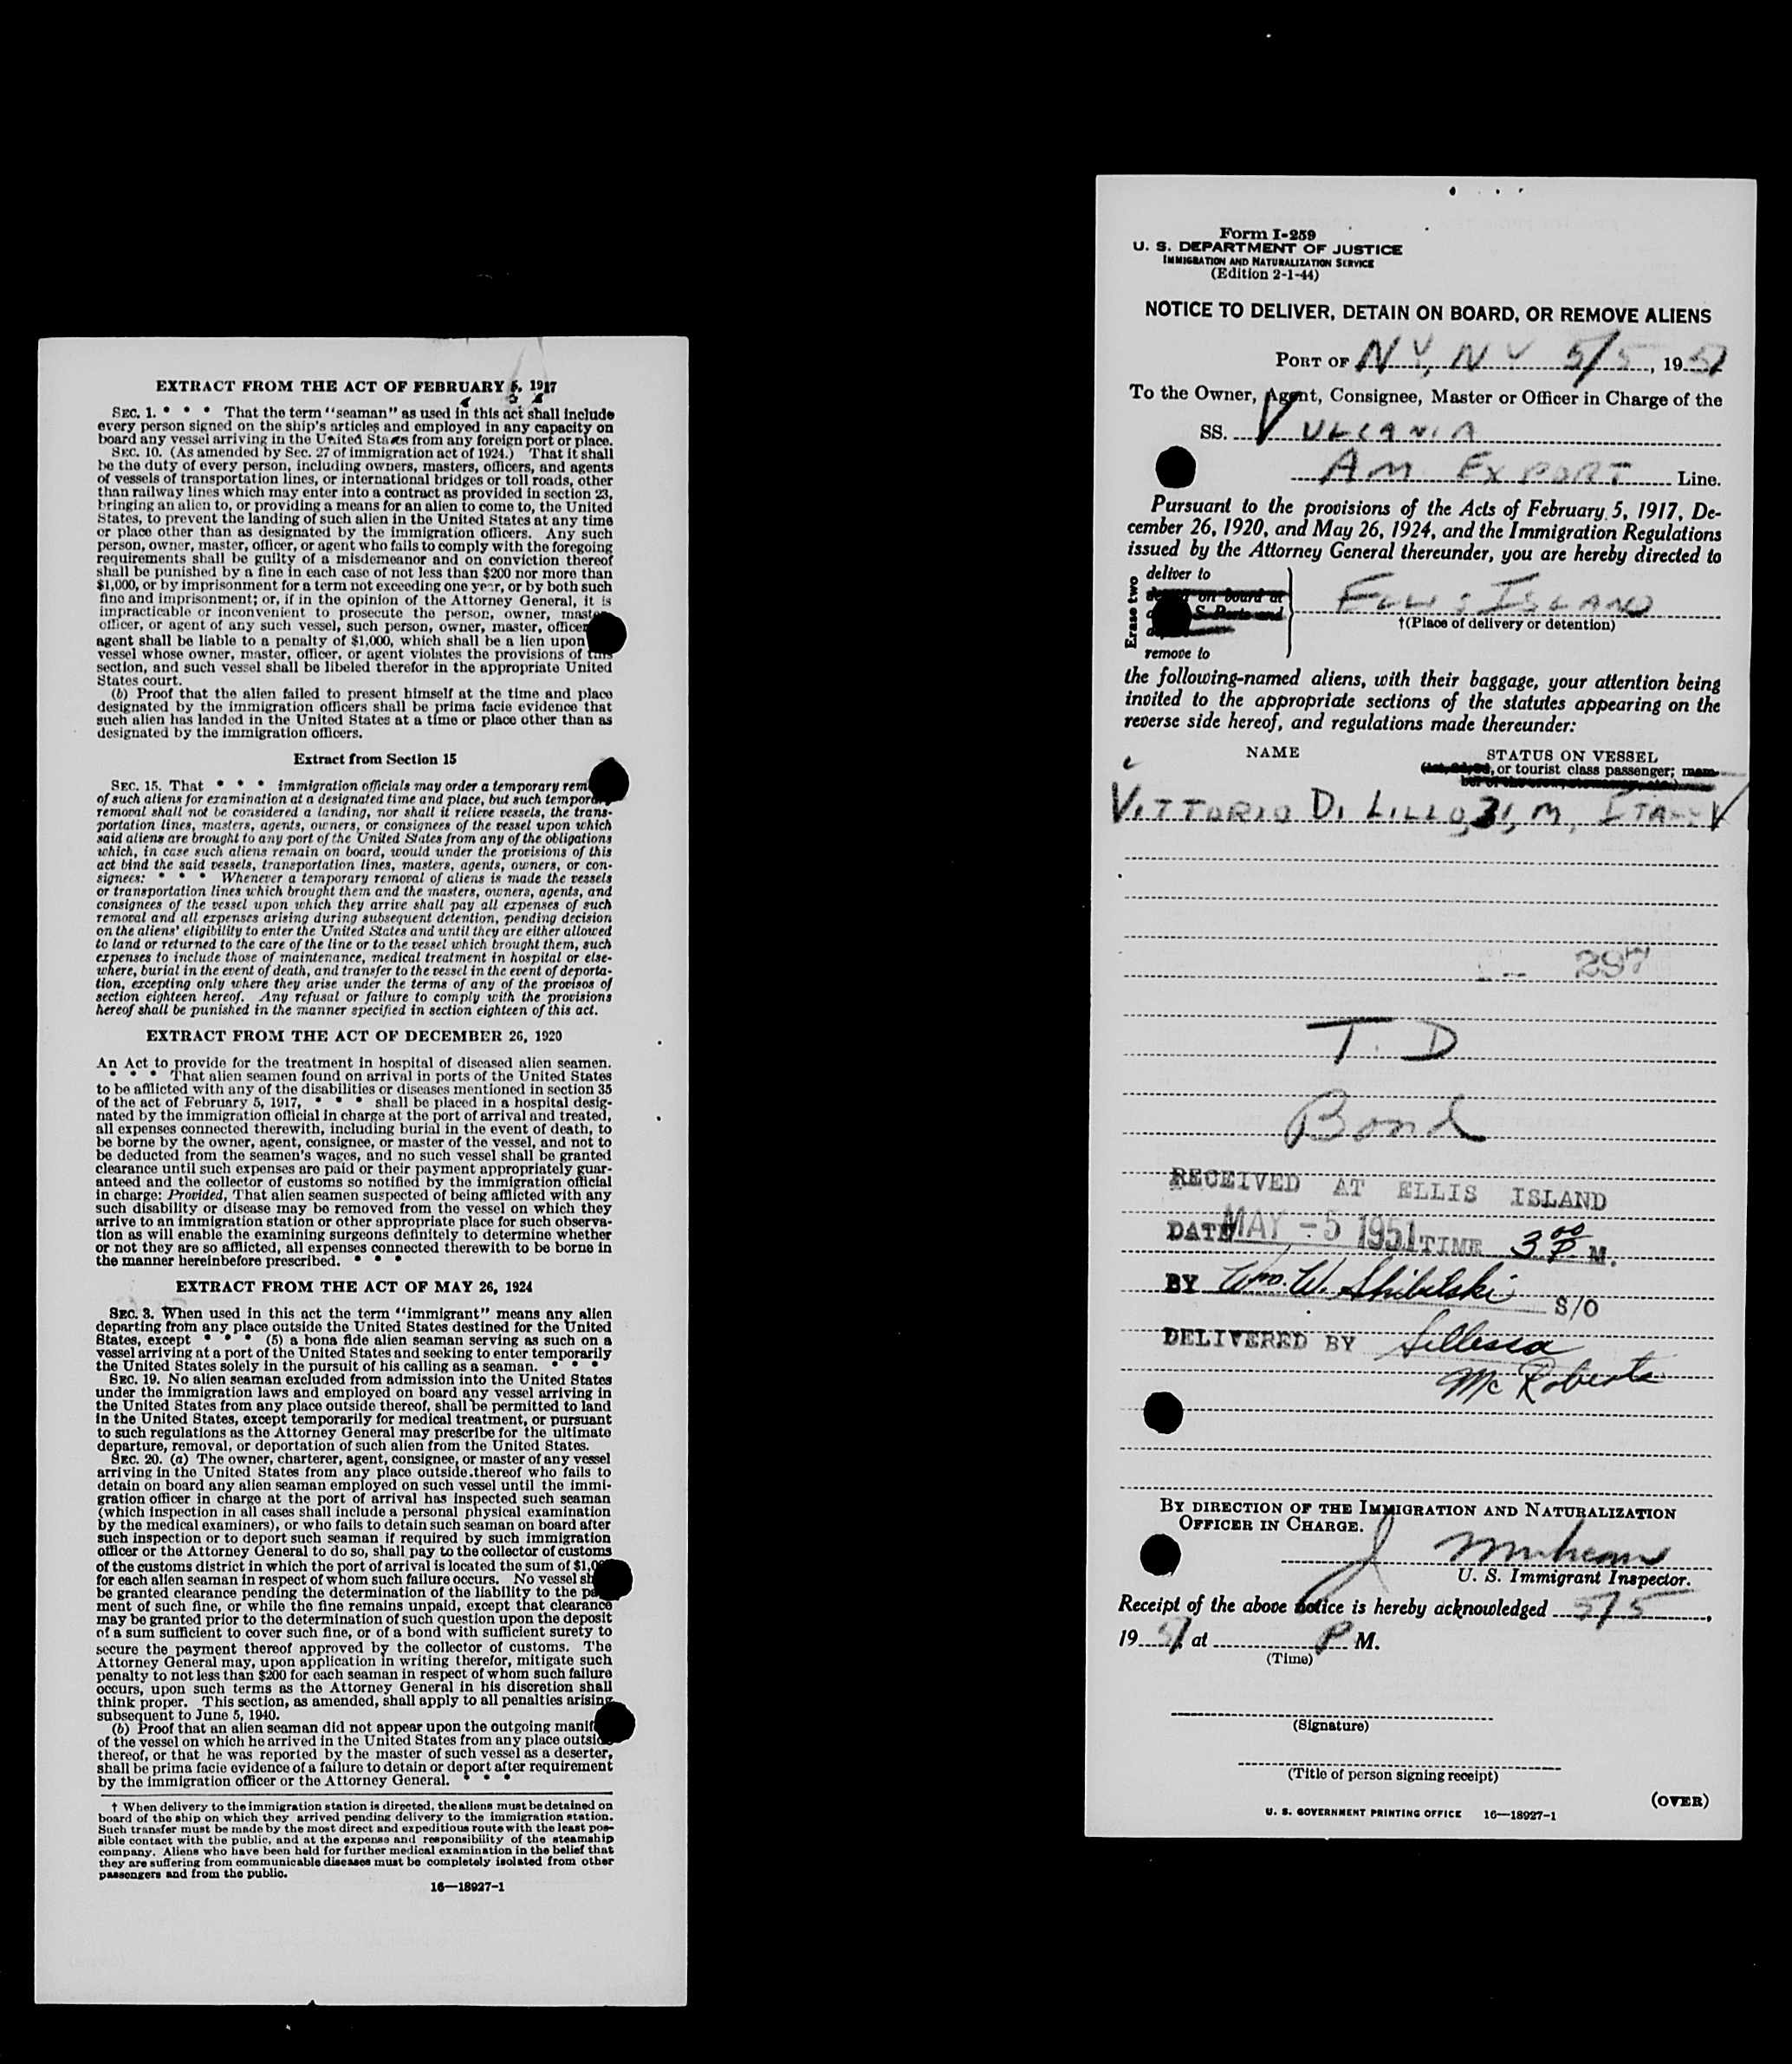 EXTRACT FROM THE ACT OF FEBRUARY 5, 1917
SEC. 1. * * * That the term "seaman" as used in this act shall include
every person signed on the ship's articles and employed in any capacity on
board any vessel arriving in the United States from any foreign port or place.
SEC. 10. (As amended by Sec. 27 of immigration act of 1924.) That it shall
be the duty of every person, including owners, masters, officers, and agents
of vessels of transportation lines, or international bridges or toll roads, other
than railway lines which may enter into a contract as provided in section 23,
bringing an alien to, or providing a means for an alien to come to, the United
States, to prevent the landing of such alien in the United States at any time
or place other than as designated by the immigration officers. Any such
person, owner, master, officer, or agent who fails to comply with the foregoing
requirements shall be guilty of a misdemeanor and on conviction thereof
shall be punished by a fine in each case of not less than $200 nor more than
$1,000, or by imprisonment for a term not exceeding one year, or by both such
fine and imprisonment; or, if in the opinion of the Attorney General, it is
impracticable or inconvenient to prosecute the person, owner, master,
officer, or agent of any such vessel, such person, owner, master, officer
agent shall be liable to a penalty of $1,000, which shall be a lien upon
vessel whose owner, master, officer, or agent violates the provisions of this
section, and such vessel shall be libeled therefor in the appropriate United
States court.
(b) Proof that the alien failed to present himself at the time and place
designated by the immigration officers shall be prima facie evidence that
such alien has landed in the United States at a time or place other than as
designated by the immigration officers.
Extract from Section 15
SEC. 15. That * * * immigration officials may order a temporary rem
of such aliens for examination at a designated time and place, but such temporary
removal shall not be considered a landing, nor shall it relieve vessels, the trans-
portation lines, masters, agents, owners, or consignees of the vessel upon which
said aliens are brought to any port of the United States from any of the obligations
which, in case such aliens remain on board, would under the provisions of this
act bind the said vessels, transportation lines, masters, agents, owners, or con-
signees: * * * Whenever a temporary removal of aliens is made the vessels
or transportation lines which brought them and the masters, owners, agents, and
consignees of the vessel upon which they arrive shall pay all expenses of such
removal and all expenses arising during subsequent detention, pending decision
on the aliens' eligibility to enter the United States and until they are either allowed
to land or returned to the care of the line or to the vessel which brought them, such
expenses to include those of maintenance, medical treatment in hospital or else-
where, burial in the event of death, and transfer to the vessel in the event of deporta-
tion, excepting only where they arise under the terms of any of the provisos of
section eighteen hereof. Any refusal or failure to comply with the provisions
hereof shall be punished in the manner specified in section eighteen of this act.
EXTRACT FROM THE ACT OF DECEMBER 26, 1920
An Act to provide for the treatment in hospital of diseased alien seamen.
* * * That alien seamen found on arrival in ports of the United States
to be afflicted with any of the disabilities or diseases mentioned in section 35
of the act of February 5, 1917, * * * shall be placed in a hospital desig-
nated by the immigration official in charge at the port of arrival and treated,
all expenses connected therewith, including burial in the event of death, to
be borne by the owner, agent, consignee, or master of the vessel, and not to
be deducted from the seamen's wages, and no such vessel shall be granted
clearance until such expenses are paid or their payment appropriately guar-
anteed and the collector of customs so notified by the immigration official
in charge: Provided, That alien seamen suspected of being afflicted with any
such disability or disease may be removed from the vessel on which they
arrive to an immigration station or other appropriate place for such observa-
tion as will enable the examining surgeons definitely to determine whether
or not they are so afflicted, all expenses connected therewith to be borne in
the manner hereinbefore prescribed. * * *
EXTRACT FROM THE ACT OF MAY 26, 1924
SEC. 3. When used in this act the term "immigrant" means any alien
departing from any place outside the United States destined for the United
States, except * * * (5) a bona fide alien seaman serving as such on a
vessel arriving at a port of the United States and seeking to enter temporarily
the United States solely in the pursuit of his calling as a seaman. * * *
SEC. 19. No alien seaman excluded from admission into the United States
under the immigration laws and employed on board any vessel arriving in
the United States from any place outside thereof, shall be permitted to land
in the United States, except temporarily for medical treatment, or pursuant
to such regulations as the Attorney General may prescribe for the ultimate
departure, removal, or deportation of such alien from the United States.
SEC. 20. (a) The owner, charterer, agent, consignee, or master of any vessel
arriving in the United States from any place outside thereof who fails to
detain on board any alien seaman employed on such vessel until the immi-
gration officer in charge at the port of arrival has inspected such seaman
(which inspection in all cases shall include a personal physical examination
by the medical examiners), or who fails to detain such seaman on board after
such inspection or to deport such seaman if required by such immigration
officer or the Attorney General to do so, shall pay to the collector of customs
of the customs district in which the port of arrival is located the sum of $1,00
for each alien seaman in respect of whom such failure occurs. No vessel sh
be granted clearance pending the determination of the liability to the pay
ment of such fine, or while the fine remains unpaid, except that clearance
may be granted prior to the determination of such question upon the deposit
of a sum sufficient to cover such fine, or of a bond with sufficient surety to
secure the payment thereof approved by the collector of customs. The
Attorney General may, upon application in writing therefor, mitigate such
penalty to not less than $200 for each seaman in respect of whom such failure
occurs, upon such terms as the Attorney General in his discretion shall
think proper. This section, as amended, shall apply to all penalties arising
subsequent to June 5, 1940.
(b) Proof that an alien seaman did not appear upon the outgoing manif
of the vessel on which he arrived in the United States from any place outside
thereof, or that he was reported by the master of such vessel as a deserter,
shall be prima facie evidence of a failure to detain or deport after requirement
by the immigration officer or the Attorney General. * * *
† When delivery to the immigration station is directed, the aliens must be detained on
board of the ship on which they arrived pending delivery to the immigration station.
Such transfer must be made by the most direct and expeditious route with the least pos-
sible contact with the public, and at the expense and responsibility of the steamship
company. Aliens who have been held for further medical examination in the belief that
they are suffering from communicable diseases must be completely isolated from other
passengers and from the public.
16—18927-1
Form I-259
U. S. DEPARTMENT OF JUSTICE
IMMIGRATION AND NATURALIZATION SERVICE
(Edition 2-1-44)
NOTICE TO DELIVER, DETAIN ON BOARD, OR REMOVE ALIENS
PORT OF N Y, N Y 5/5, 1951
To the Owner, Agent, Consignee, Master or Officer in Charge of the
SS. VULCANIA
AM EXPORT Line.
Pursuant to the provisions of the Acts of February 5, 1917, De-
cember 26, 1920, and May 26, 1924, and the Immigration Regulations
issued by the Attorney General thereunder, you are hereby directed to
Erase two
deliver to
on board at
S. Ports and
remove to
ELLIS ISLAND
†(Place of delivery or detention)
the following-named aliens, with their baggage, your attention being
invited to the appropriate sections of the statutes appearing on the
reverse side hereof, and regulations made thereunder:
NAME STATUS ON VESSEL
or tourist class passenger; mem-
VITTORIO DI LILLO, 31, M, ITALY
297
T. D
Bond
RECEIVED AT ELLIS ISLAND
DATE MAY -5 1951 TIME 3 00 P M.
BY Wm. W. Shibilski S/O
DELIVERED BY
Mc Roberts
BY DIRECTION OF THE IMMIGRATION AND NATURALIZATION
OFFICER IN CHARGE.
U. S. Immigrant Inspector.
Receipt of the above notice is hereby acknowledged 5/5,
1951 at P M.
(Time)
(Signature)
(Title of person signing receipt)
(OVER)
U. S. GOVERNMENT PRINTING OFFICE 16—18927-1